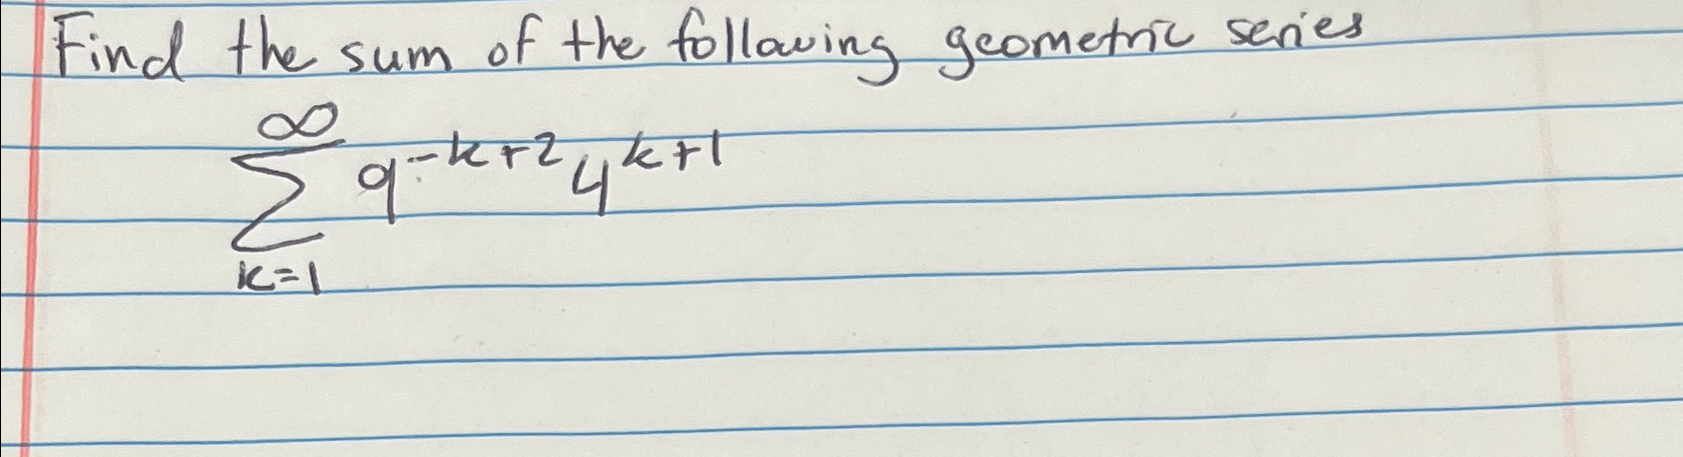 Find the sum of the following geometric series
∞
∑ 9^{-k+2} 4^{k+1}
k=1